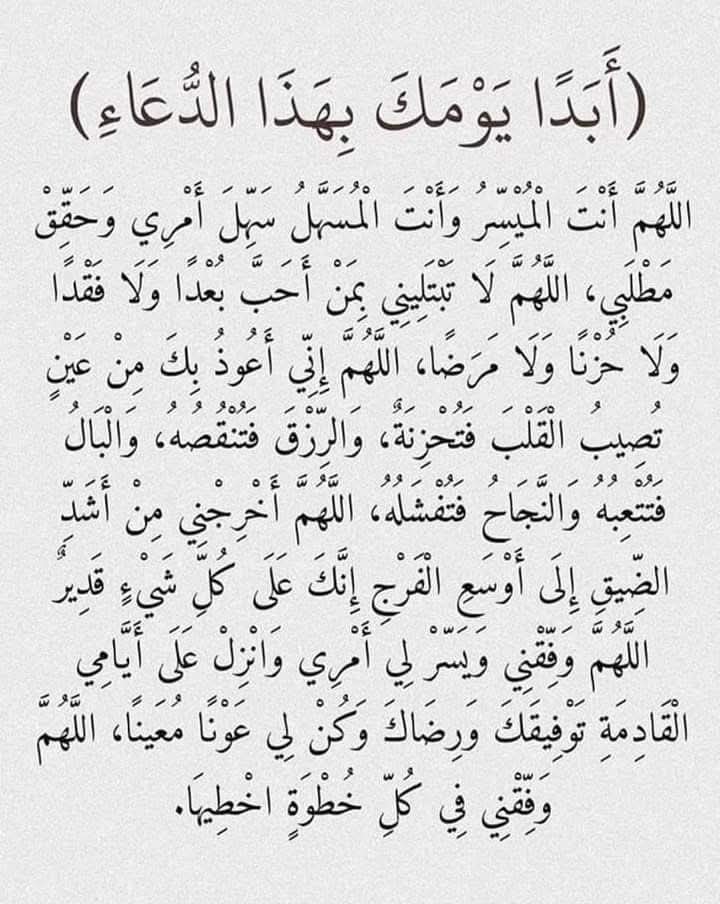 (أَبَدًا يَوْمَكَ بِهَذَا الدُّعَاءِ)
اللَّهُمَّ أَنْتَ الْمُيْسِّرُ وَأَنْتَ الْمُسَهَّلُ سَهِّلَ أَمْرِي وَحَقِّقْ
مَطْلَبِي، اللَّهُمَّ لَا تَبْتَلِينِي بِمَنْ أَحَبَّ بُعْدًا وَلَا فَقْدًا
وَلَا حُزْنًا وَلَا مَرَضًا، اللَّهُمَّ إِنِّي أَعُوذُ بِكَ مِنْ عَيْنٍ
تُصِيبُ الْقَلْبَ فَتُحْزِنَةٌ، وَالرِّزْقَ فَتُنْقُصُهُ، وَالْبَالُ
فَتُتْعِبُهُ وَالنَّجَاحُ فَتُفْشَلُهُ، اللَّهُمَّ أَخْرِجْنِي مِنْ أَشَدِّ
الضِّيقِ إِلَى أَوْسَعِ الْفَرْجِ إِنَّكَ عَلَى كُلِّ شَيْءٍ قَدِيرٌ
اللَّهُمَّ وَفِّقْنِي وَيَسِّرْ لِي أَمْرِي وَانْزِلْ عَلَى أَيَّامِي
الْقَادِمَةِ تَوْفِيقَكَ وَرِضَاكَ وَكُنْ لِي عَوْنًا مُعَينًا، اللَّهُمَّ
وَفِّقْنِي فِي كُلِّ خُطْوَةٍ اخْطِيهَا.